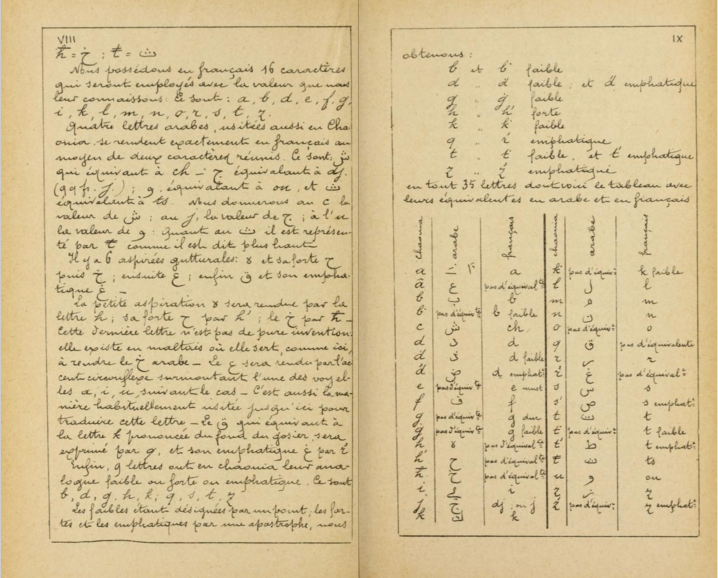 VIII
ħ = خ ; ŧ = ث
Nous possédons en français 16 caractères
qui seront employés avec la valeur que nous
leur connaissons. Ce sont : a, b, d, e, f, g,
i, k, l, m, n, o, r, s, t, z.
Quatre lettres arabes, usitées aussi en Cha
onia se rendent exactement en français au
moyen de deux caractères réunis. Ce sont ش
qui équivaut à ch _ ج équivalant à dj
(qqf. j) ; و équivalant à ou, et
équivalent à ts. Nous donnerons au c la
valeur de ش ; au j, la valeur de ج ; à l'u
la valeur de و ; Quant au ث il est représen-
té par ŧ comme il est dit plus haut _
Il y a 6 aspirées gutturales : et sa forte ح
puis خ ; ensuite ع ; enfin ق et son empha-
tique غ _
La petite aspiration sera rendue par la
lettre h ; sa forte ح par h' ; le خ par ħ _
Cette dernière lettre n'est pas de pure invention
elle existe en maltais où elle sert, comme ici,
à rendre le خ arabe _ Le ع sera rendu par l'ac
cent circonflexe surmontant l'une des voyel-
les a, i, u, suivant le cas _ C'est aussi la ma-
nière habituellement usitée jusqu'ici pour
traduire cette lettre _ Le ق qui équivaut à
la lettre k prononcée du fond du gosier, sera
exprimé par q, et son emphatique غ par
Enfin, 9 lettres ont en chaonia leur ana-
logue faible ou forte ou emphatique. Ce sont
b, d, g, h, k, q, s, t, z
Les faibles étant désignées par un point, les for-
tes et les emphatiques par une apostrophe, nous
IX
obtenons :
b et ḃ faible
d " ḋ faible ; et d' emphatique
g " ġ faible
h " h' forte
k " k̇ faible
q " emphatique
t " ṫ faible, et t' emphatique
z " z' emphatique
en tout 35 lettres dont voici le tableau avec
leurs équivalentes en arabe et en français
chaonia arabe français chaonia arabe français
a ا a k̇ pas d'équiv.te k faible
â ع pas d'équival.te l ل l
b ب b m م m
ḃ pas d'équiv.te b faible n ن n
c ش ch o pas d'équiv.te o
d د d q ق pas d'équivalente
ḋ ذ d faible r ر r
d' ض d emphat. غ pas d'équival.te
e pas d'équiv.te e muet s س s
f ف f s' ص s emphat.
g pas d'équiv.te g dur t ت t
ġ pas d'équiv.te g faible ṫ pas d'équiv.te t faible
h pas d'équival.te t' ط t emphat.
h' ح pas d'équival.te ŧ ث ts
ħ خ pas d'équival.te u و ou
i ي i z ز z
j ج dj ou j z' pas d'équiv.te z emphat.
k ك k